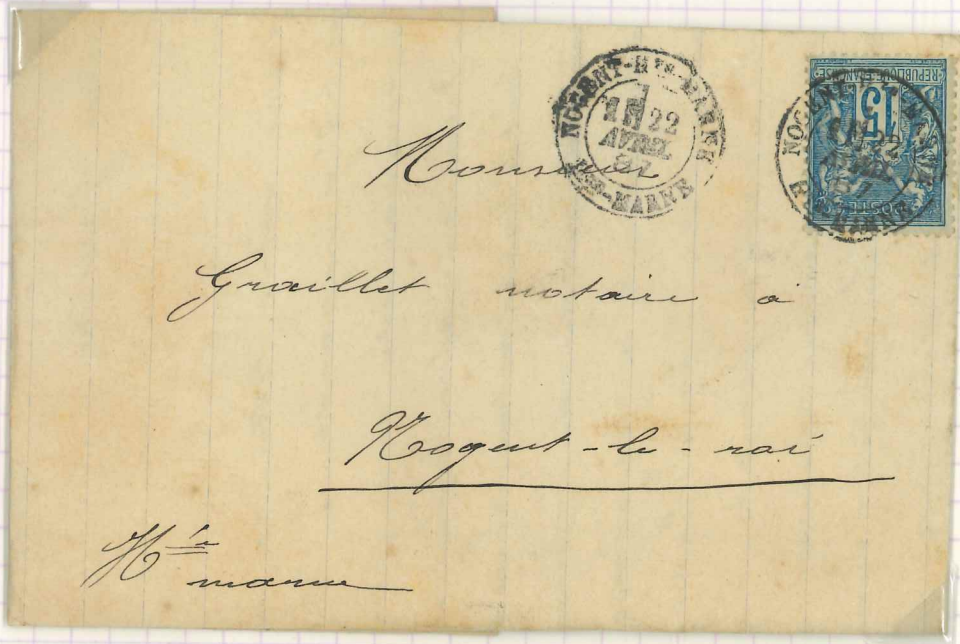 NOGENT-HTE-MARNE
1E 22
AVRIL
87
HTE-MARNE
REPUBLIQUE FRANCAISE
15
POSTE
NOGENT
22
87
Monsieur
Graillet notaire à
Nogent-le-roi
Hte
marne